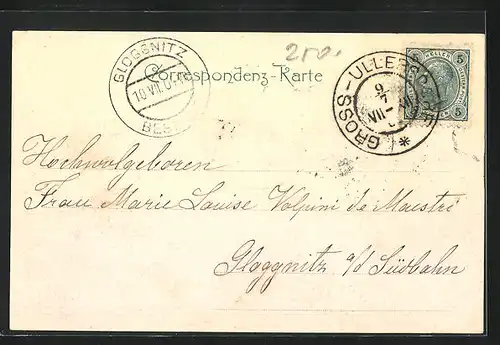 GLOGGNITZ
10.VII.01
BEST
250.
Correspondenz-Karte
GROSS-ULLERSDORF
9/7
VII
5 5
Hochwolgeboren
Frau Marie Louise Volpini de Maestri
Gloggnitz a/d Südbahn